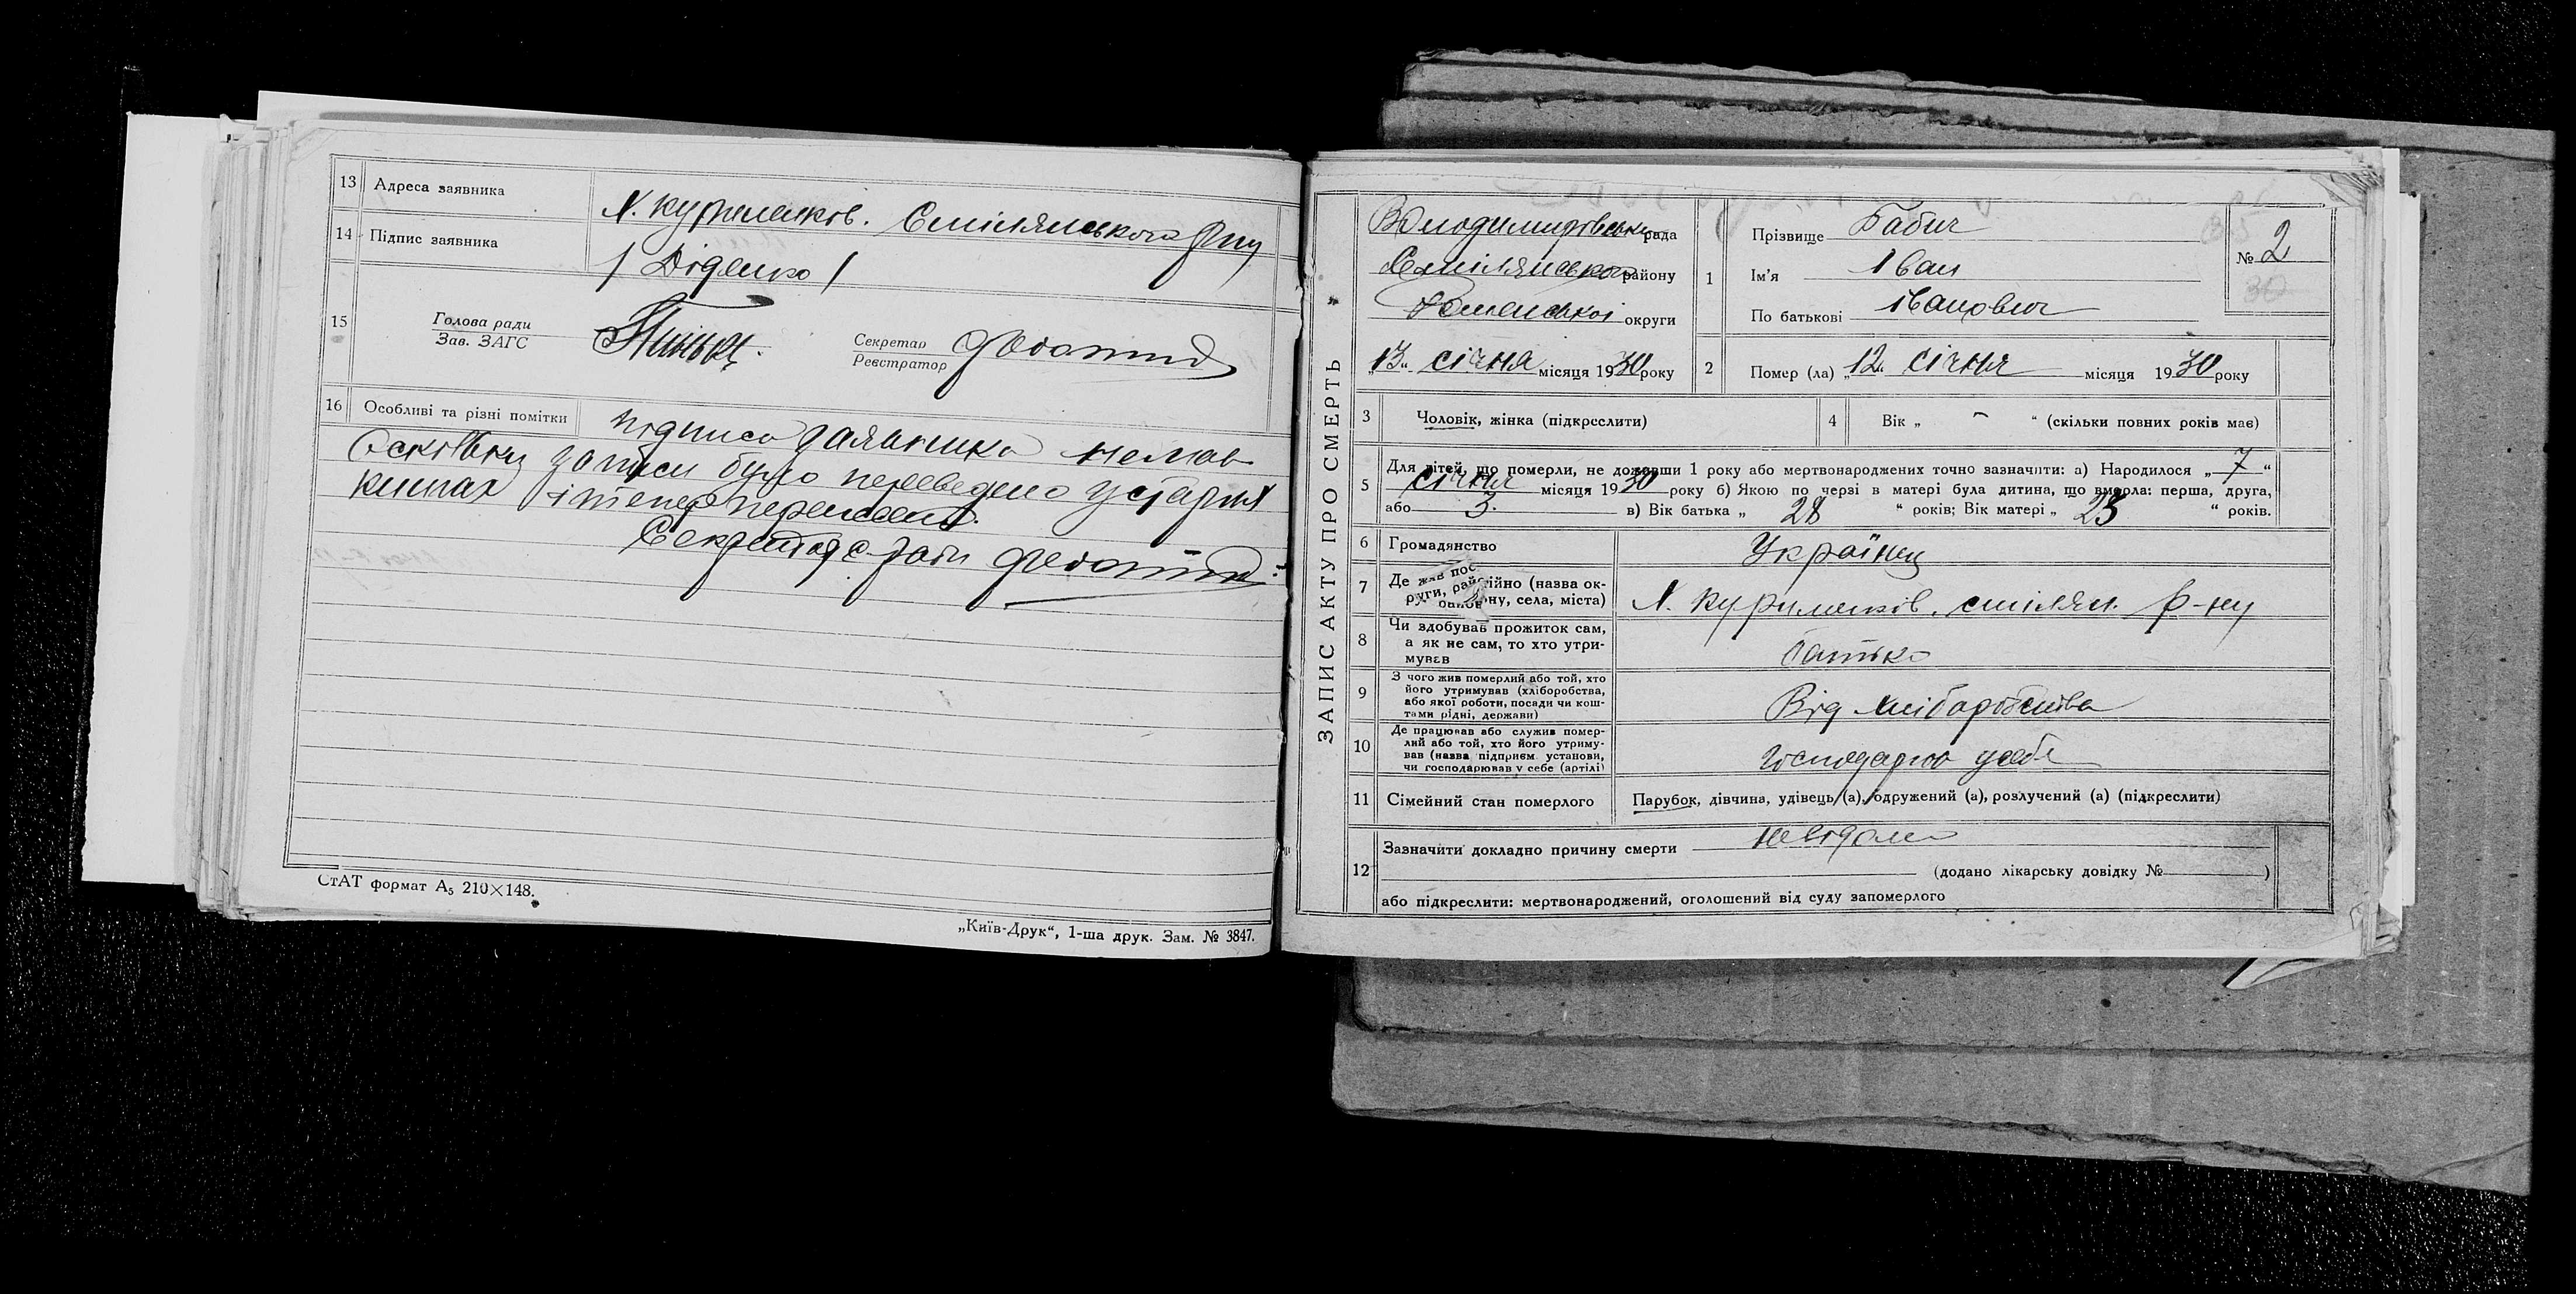 13 Адреса заявника Х. Куриленків. Смілянського р-ну
14 Підпис заявника / Діденко /
15 Голова ради
Зав. ЗАГС
Секретар
Реєстратор
16 Особливі та різні помітки підписа заявника немає
оскільки записи було переведено у старих
книгах і тепер переписано.
Секретар с-ради
СтАТ формат А₅ 210×148.
„Київ-Друк“, 1-ша друк. Зам. № 3847.
ЗАПИС АКТУ ПРО СМЕРТЬ
Володимирівська рада
Смілянського району
Роменської округи
„13“ січня місяця 1930 року
1 Прізвище Бабич
Ім'я Іван
По батькові Іванович
№ 2
30
2 Помер (ла) „12“ січня місяця 1930 року
3 Чоловік, жінка (підкреслити)
4 Вік „ - “ (скільки повних років має)
5 Для дітей, що померли, не доживши 1 року або мертвонароджених точно зазначити: а) Народилося „7“
січня місяця 1930 року б) Якою по черзі в матері була дитина, що вмерла: перша, друга,
або 3. в) Вік батька „28“ років; Вік матері „25“ років.
6 Громадянство Українец
7 Де жив постійно (назва ок-
руги, району, села, міста) Х. Куриленків. смілян. р-ну
8 Чи здобував прожиток сам,
а як не сам, то хто утри-
мував батько
9 З чого жив померлий або той, хто
його утримував (хліборобства,
або якої роботи, посади чи кош-
тами рідні, держави) Від хліборобства
10 Де працював або служив помер-
лий або той, хто його утриму-
вав (назва підприєм. установи,
чи господарював у себе (артілі) господарює у себе
11 Сімейний стан померлого Парубок, дівчина, удівець (а), одружений (а), розлучений (а) (підкреслити)
12 Зазначити докладно причину смерти невідомо
(додано лікарську довідку № )
або підкреслити: мертвонароджений, оголошений від суду запомерлого